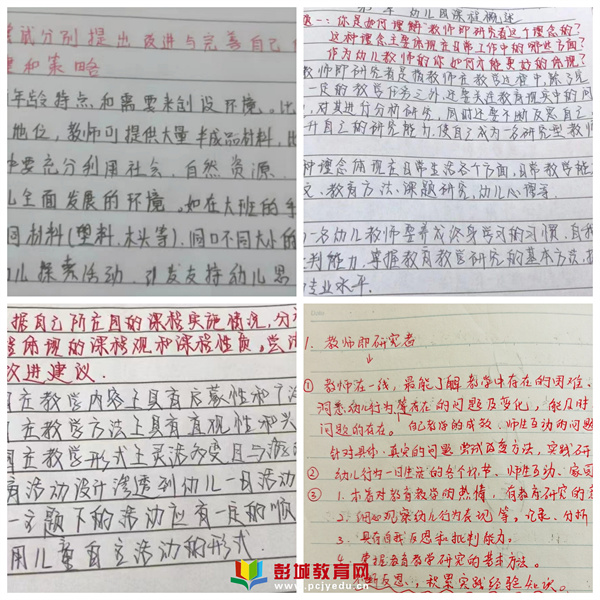 尝试分别提出改进与完善自己
和策略
年龄特点和需要来创设环境。比
地位，教师可提供大量半成品材料，
要充分利用社会、自然资源
儿全面发展的环境。如在大班的
同材料(塑料、木头等)、同口不同大小的
儿探索活动，引发支持幼儿思
幼儿园课程概述
一：你是如何理解“教师即研究者”这个理念的？
这种理念主要体现在日常工作中的哪些方面？
作为幼儿教师的你如何才能更好的体现？
教师即研究者是指教师在教学过程中，除了完
一定的教学任务之外，还要关注教育现实中的问
，对其进行分析研究，同时还要不断反思自己，
升自己的研究能力，使自己成为一名研究型教师
种理念体现在日常生活各个方面，日常教学
教育方法、课题研究、幼儿心理等
一名幼儿教师要养成终身学习的习惯，自我
判能力，掌握教育教学研究的基本方法，
专业水平.
据自己所在园的课程实施情况，分
体现的课程观和课程性质，尝试
改进建议.
在教学内容上具有启蒙性和
在教学方法上具有直观性和兴
在教学形式上灵活多变且与游
活动设计渗透到幼儿一日活动
一主题下的活动应有一定的顺
用儿童自主活动的形式.
1. 教师即研究者
① 教师在一线，最能了解教学中存在的困难、
洞悉幼儿行为等存在的问题及变化，能及时
问题的存在。自己教学的成效、师生互动的问题
针对具体、真实的问题尝试改变方法，实践研
② 幼儿行为一日生活的各个环节、师生互动、家园
③ 1. 本着对教育教学的热情，有教育研究的意
2. 细心观察幼儿行为表现等，记录、分析
3. 具有自我反思和批判能力。
4. 掌握教育教学研究的基本方法。
反思，积累实践经验知识。
彭城教育网
www.pcjyedu.cn